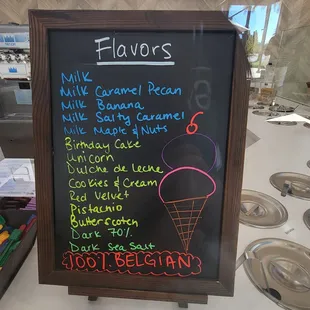 Flavors
Milk
Milk Caramel Pecan
Milk Banana
Milk Salty Caramel
Milk Maple & Nuts
Birthday Cake
Unicorn
Dulche de Leche
Cookies & Cream
Red Velvet
Pistachio
Butterscotch
Dark 70%
Dark Sea Salt
100% BELGIAN